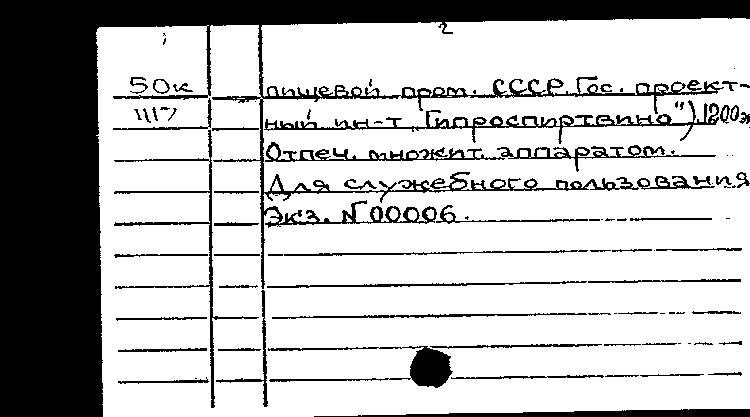 2
50к пищевой пром. СССР. Гос. проект-
1117 ный ин-т „Гипроспиртвино"). 1200 эк
Отпеч. множит. аппаратом.
Для служебного пользования
Экз. N 00006.